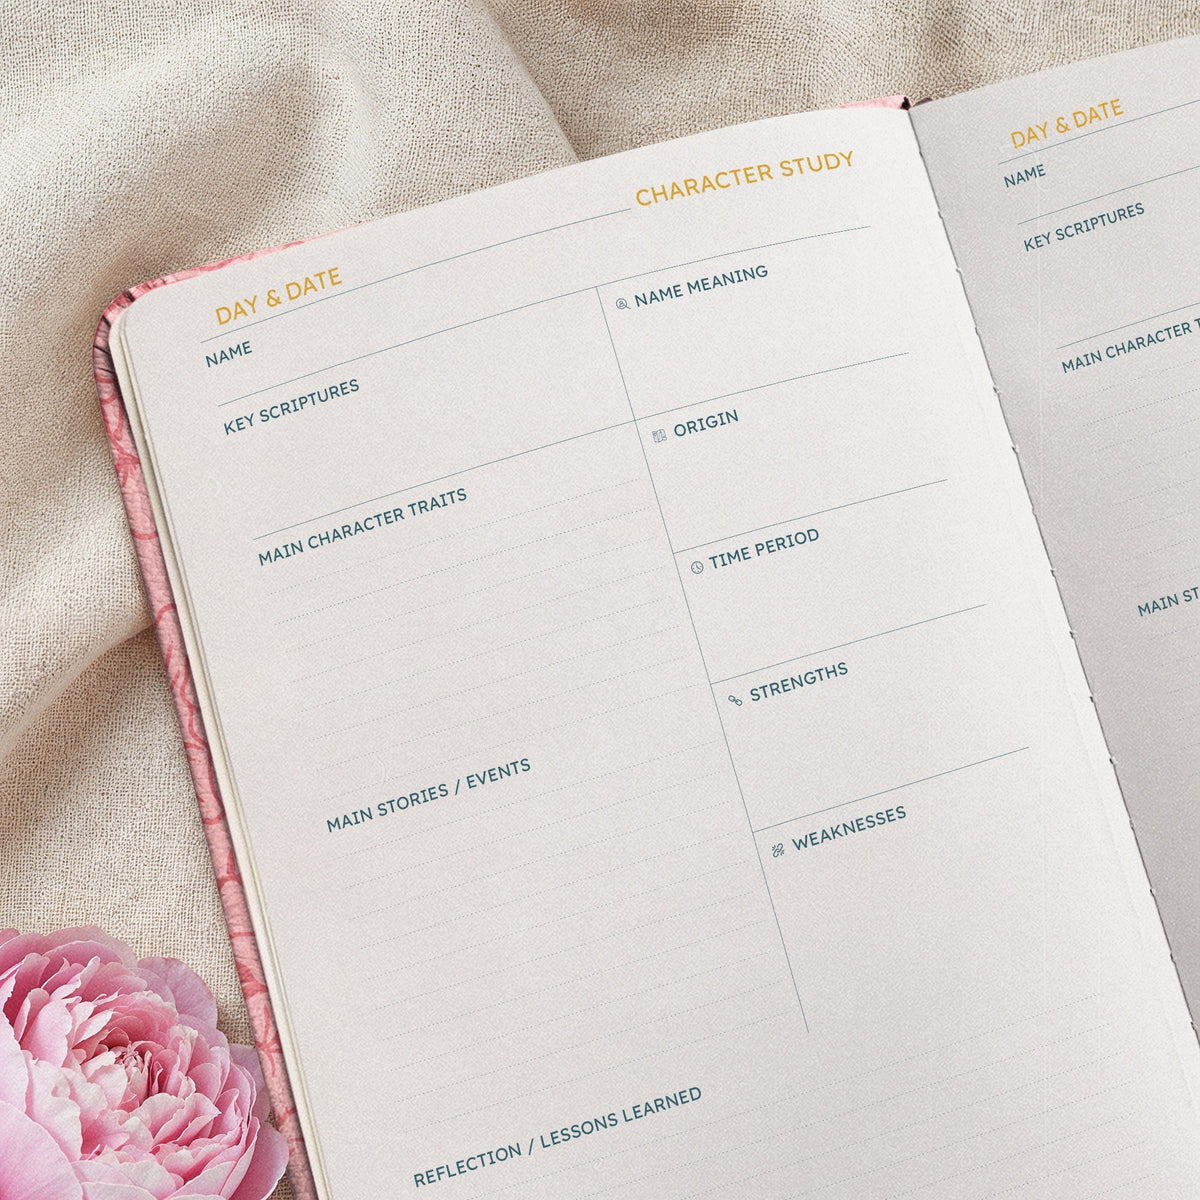 DAY & DATE
CHARACTER STUDY
NAME
NAME MEANING
KEY SCRIPTURES
ORIGIN
MAIN CHARACTER TRAITS
TIME PERIOD
STRENGTHS
MAIN STORIES / EVENTS
WEAKNESSES
REFLECTION / LESSONS LEARNED
DAY & DATE
NAME
KEY SCRIPTURES
MAIN CHARACTER
MAIN